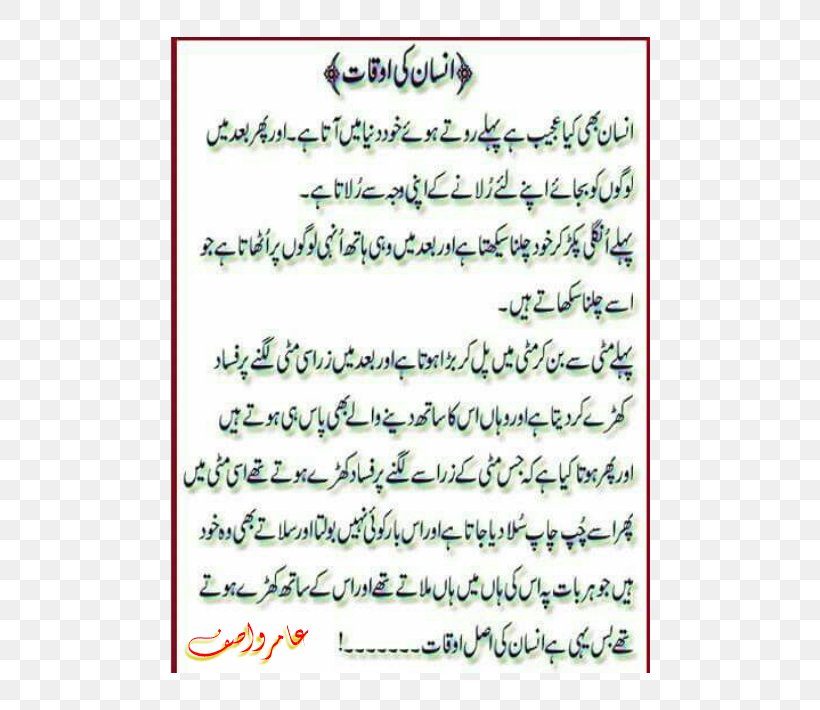 ﴿انسان کی اوقات﴾
انسان بھی کیا عجیب ہے پہلے روتے ہوئے خود دنیا میں آتا ہے۔اور پھر بعد میں
لوگوں کو بجائے اپنے لئے رُلانے کے اپنی وجہ سے رُلاتا ہے۔
پہلے اُنگلی پکڑ کر خود چلنا سیکھتا ہے اور بعد میں وہی ہاتھ اُنہی لوگوں پر اُٹھاتا ہے جو
اسے چلنا سکھاتے ہیں۔
پہلے مٹی سے بن کر مٹی میں پل کر بڑا ہوتا ہے اور بعد میں زرا سی مٹی لگنے پر فساد
کھڑے کر دیتا ہے اور وہاں اس کا ساتھ دینے والے بھی پاس ہی ہوتے ہیں
اور پھر ہوتا کیا ہے کہ جس مٹی کے زرا سے لگنے پر فساد کھڑے ہوتے تھے اسی مٹی میں
پھر اسے چُپ چاپ سُلا دیا جاتا ہے اور اس بار کوئی نہیں بولتا اور سلاتے بھی وہ خود
ہیں جو ہر بات پہ اس کی ہاں میں ہاں ملاتے تھے اور اس کے ساتھ کھڑے ہوتے
تھے بس یہی ہے انسان کی اصل اوقات۔۔۔۔۔۔۔!
عامر واصف